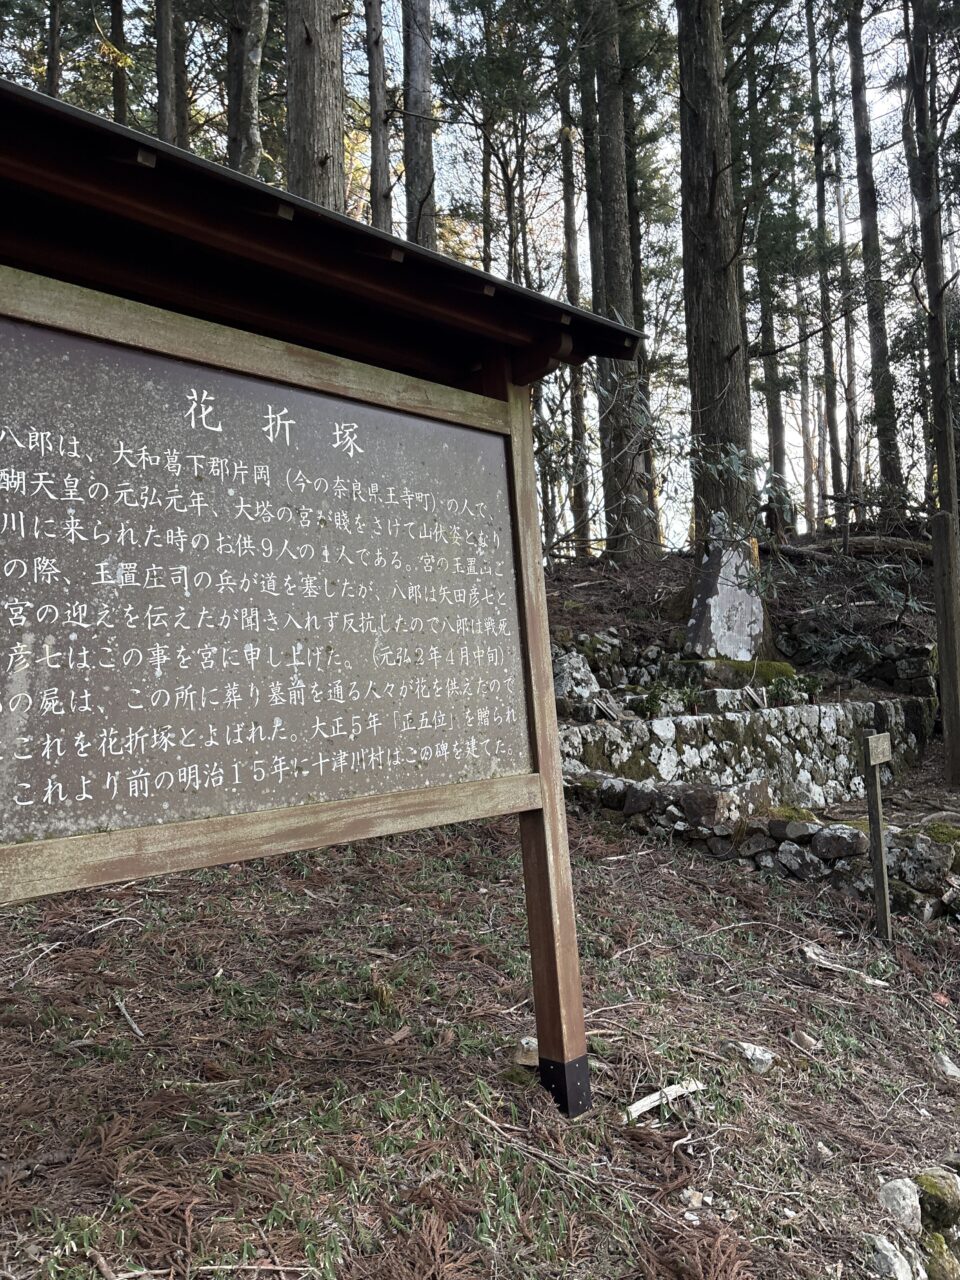 花折塚
八郎は、大和葛下郡片岡（今の奈良県王寺町）の人で、
醐天皇の元弘元年、大塔の宮が賤をさけて山伏姿となり
川に来られた時のお供9人の1人である。宮の玉置山ご
の際、玉置庄司の兵が道を塞したが、八郎は矢田彦七と
宮の迎えを伝えたが聞き入れず反抗したので八郎は戦死
彦七はこの事を宮に申し上げた。（元弘2年4月中旬）
の屍は、この所に葬り墓前を通る人々が花を供えたので
これを花折塚とよばれた。大正5年「正五位」を贈られ
これより前の明治15年に十津川村はこの碑を建てた。